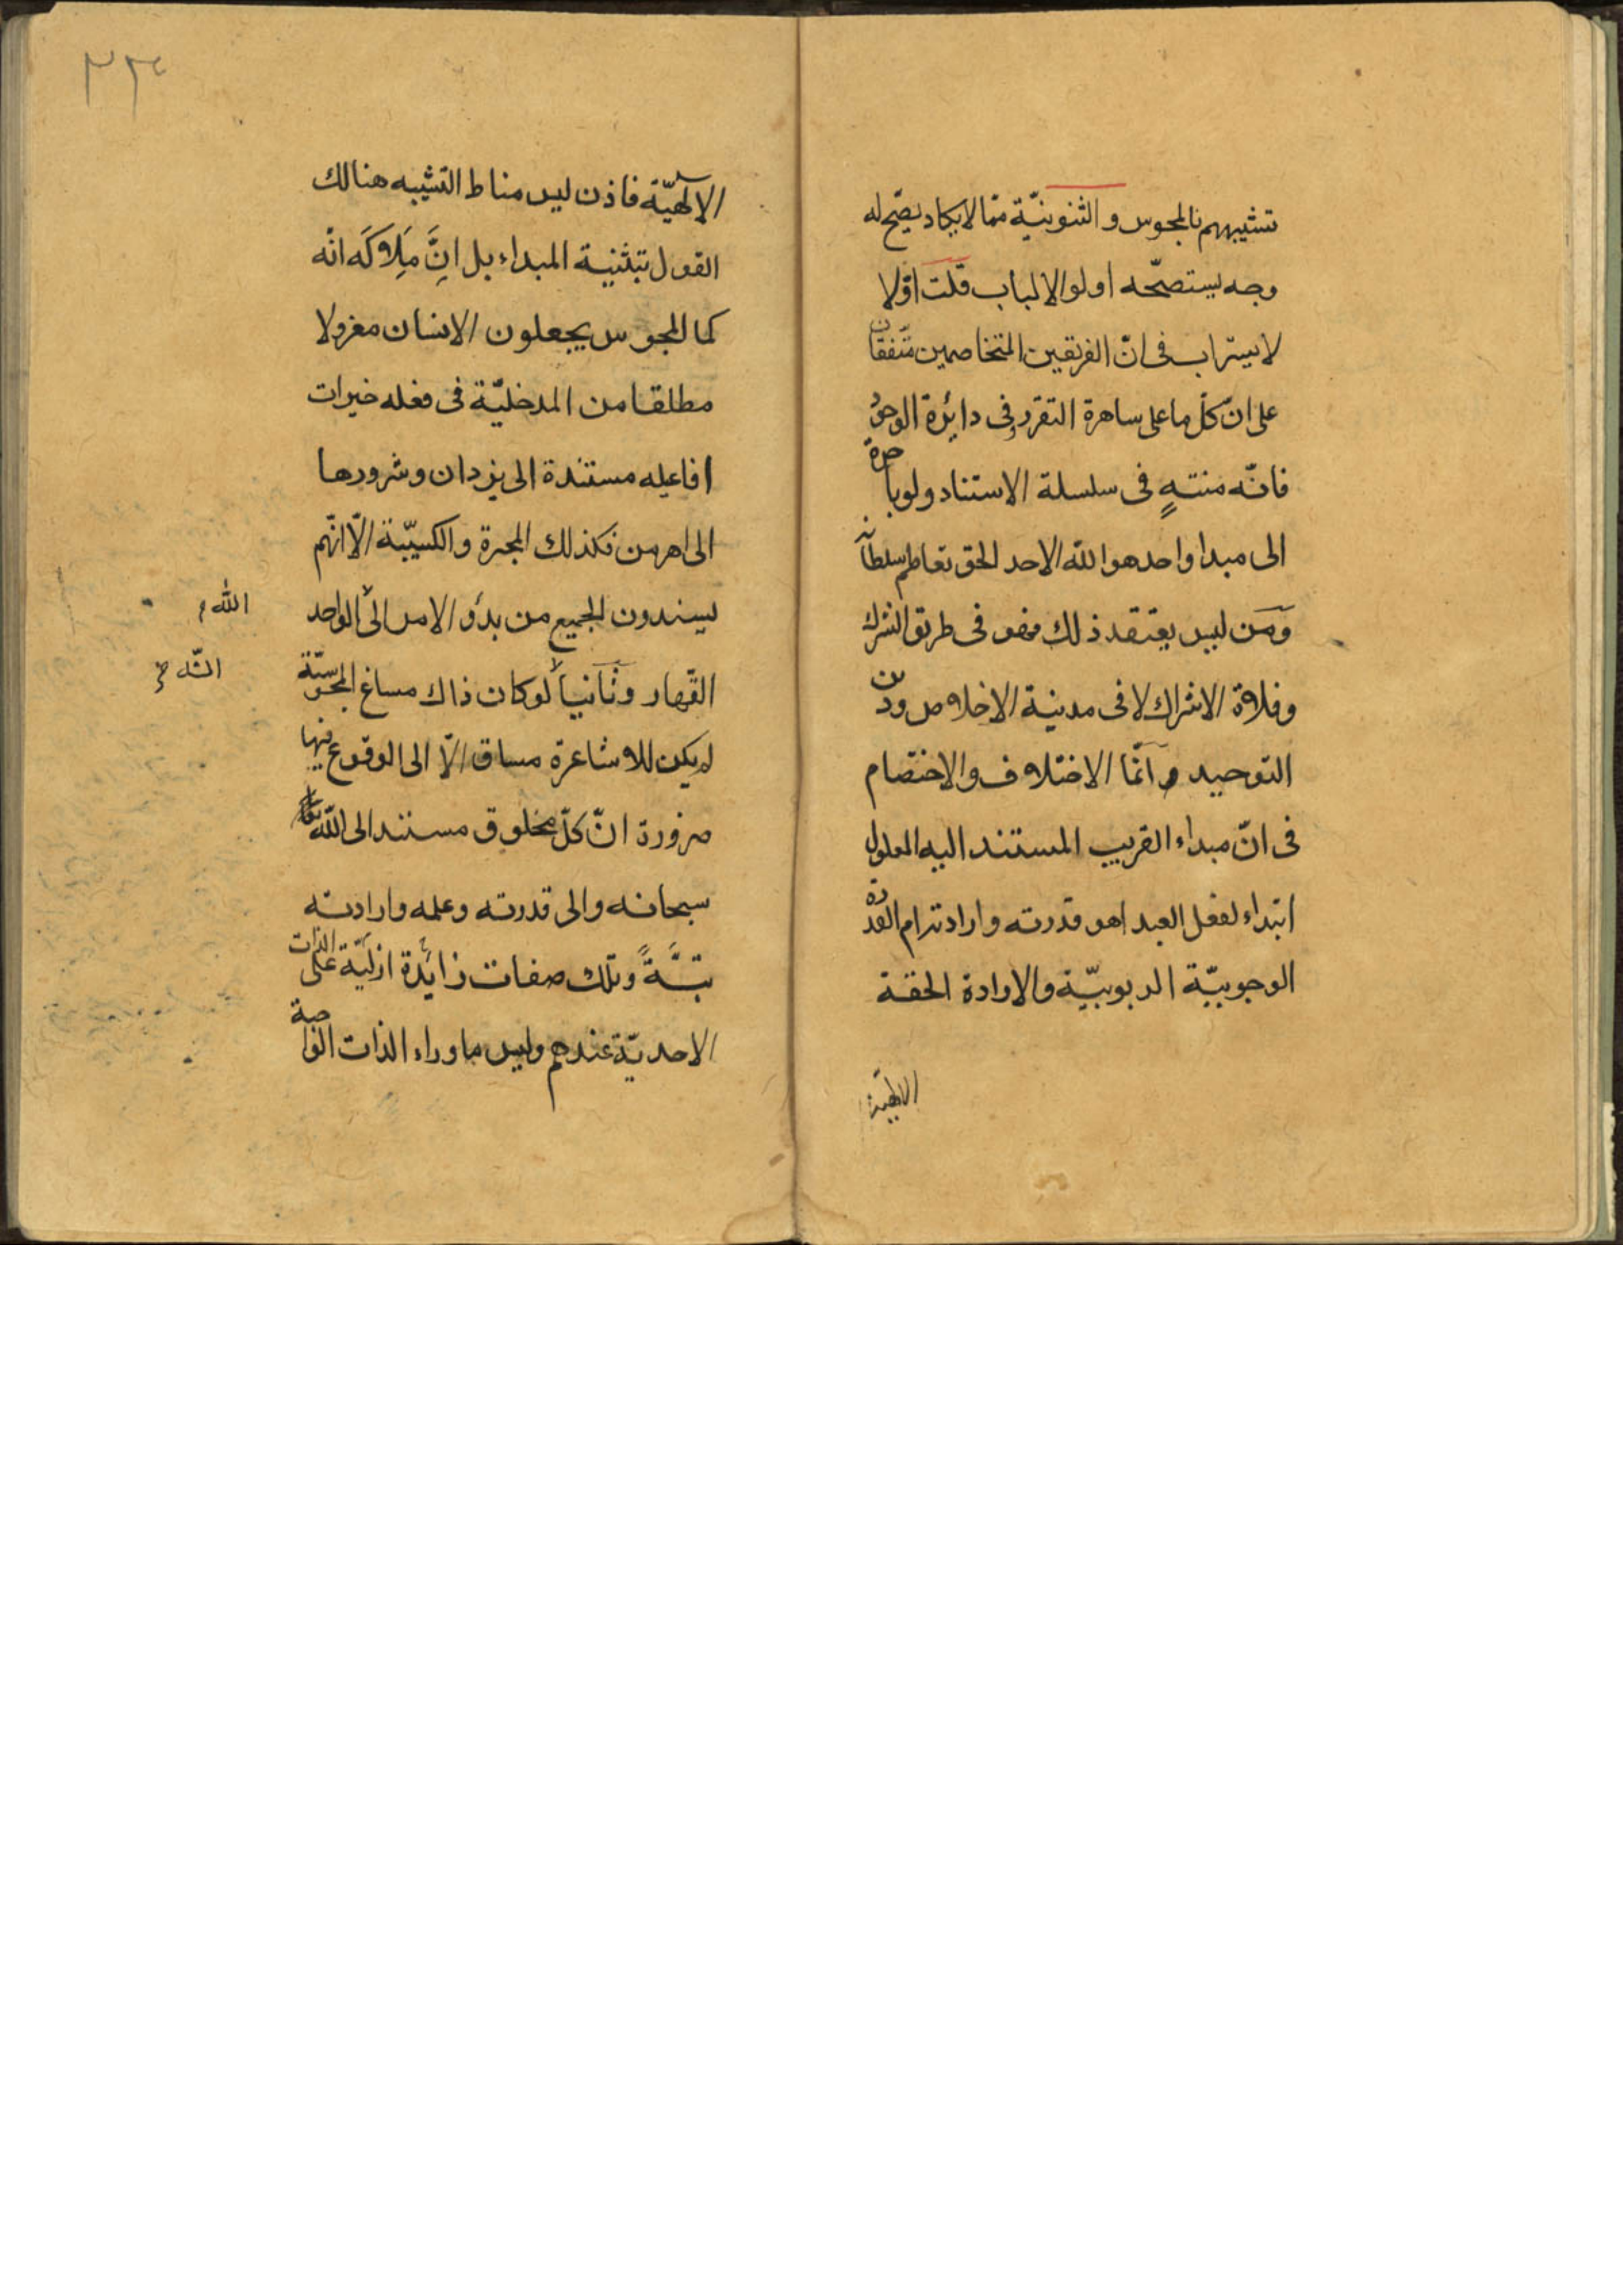 تشبيههم بالمجوس والثنويّة ممّا لا يكاد يصحّ له
وجه يستصحّه اولوا الالباب قلت اوّلا
لا يستراب فى انّ الفريقين المتخاصمين متّفقان
على انّ كلّ ما على ساهرة التقرر وفى دائرة الوجود
فانّه منتهٍ فى سلسلة الاستناد ولو باخرة
الى مبدا واحد هو اللّه الاحد الحق تعاظم سلطانه
ومن ليس يعتقد ذلك فهو فى طريق الشرك
وفلاة الاشراك لا فى مدينة الاخلاص ودين
التوحيد وانّما الاختلاف والاختصام
فى انّ مبداء القريب المستند اليه المعلول
ابتداء لفعل العبد اهو قدرته وارادته ام القدرة
الوجوبيّة الربوبيّة والارادة الحقة
الالهيّة
٣٣
الالهيّة فاذن ليس مناط التشبيه هنالك
القول بتثنية المبداء بل انَّ مَلاكَه انّه
كما المجوس يجعلون الانسان معزولا
مطلقا من المدخليّة فى فعله خيرات
افاعيله مستندة الى يزدان وشرورها
الى اهرمن فكذلك المجبرة والكسبيّة الّا انّهم
يسندون الجميع من بدؤ الامر الى الواحد
اللّه
القهار وثانيا لو كان ذاك مساغ المجوسيّة
اللّه خ
لم يكن للاشاعرة مساق الّا الى الوقوع فيها
ضرورة انّ كلّ مخلوق مستند الى اللّه
سبحانه والى قدرته وعلمه وارادته
بتّةً وتلك صفات زائدة ازليّة على الذات
الاحديّة عندهم وليس ما وراء الذات الواجبة